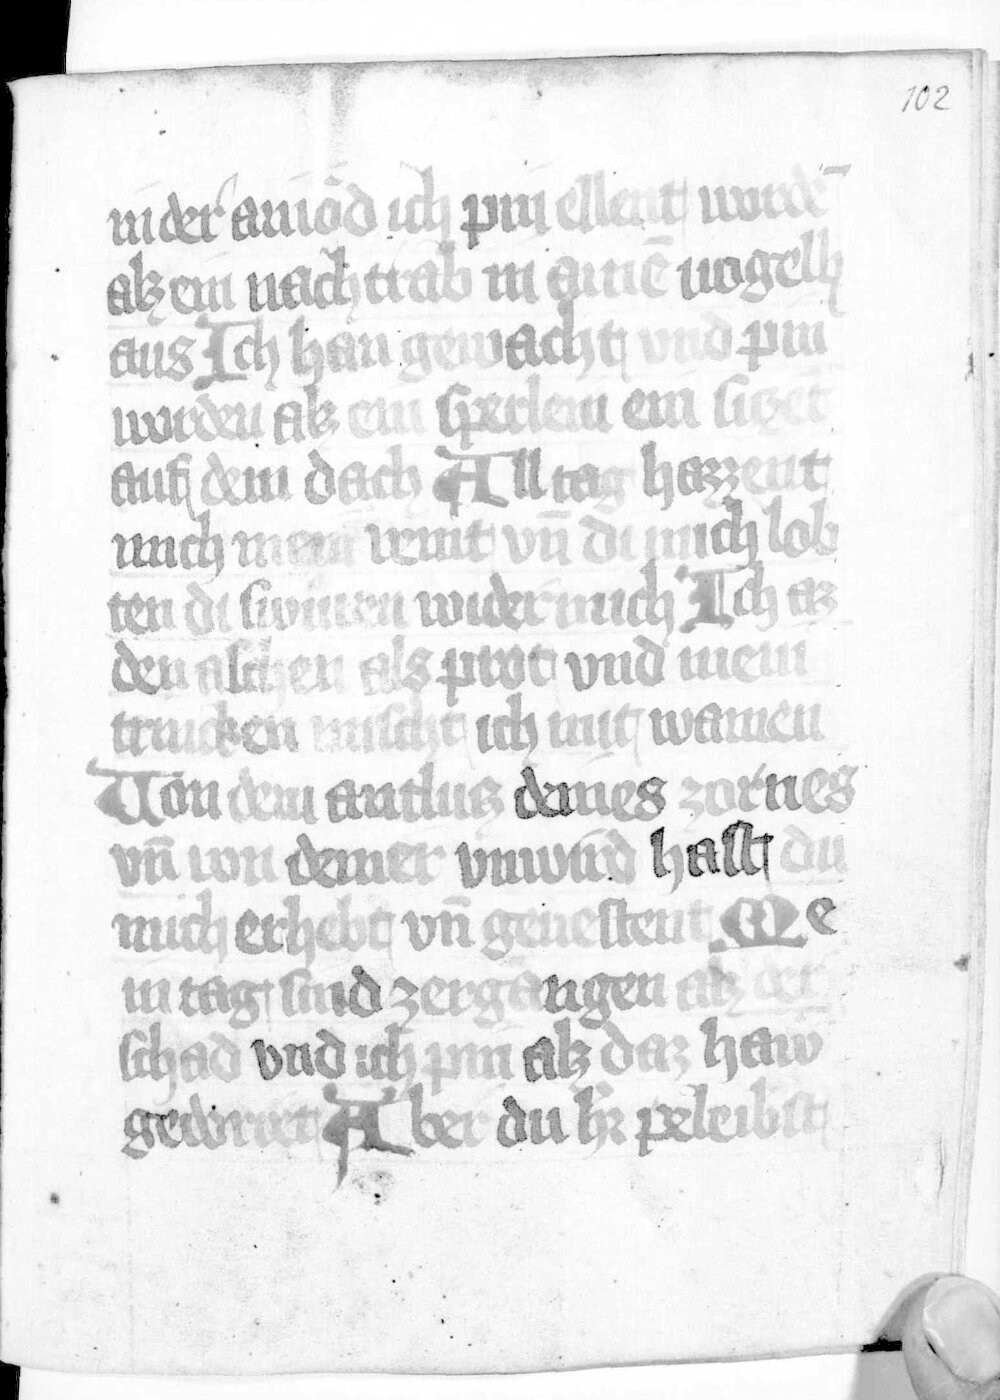 102
in der ainȯd ich pin ellent wordē
alz ein nachtrab in ainē uogelh
aus Ich han gewacht und pin
worden alz ein sperlein ein siczēt
auf dem dach All tag hazzent
mich mein veint vn̄ di mich lob
ten di swuren wider mich Ich az
den aschen als prot vnd mein
trincken mischt ich mit wainen
Uon dem antlutz deines zornes
vn̄ von deiner vnwird hast du
mich erhebt vn̄ geuestent Me
in tag sind zergangen alz der
schad vnd ich pin alz daz haw
gedorret Aber du hr peleibst